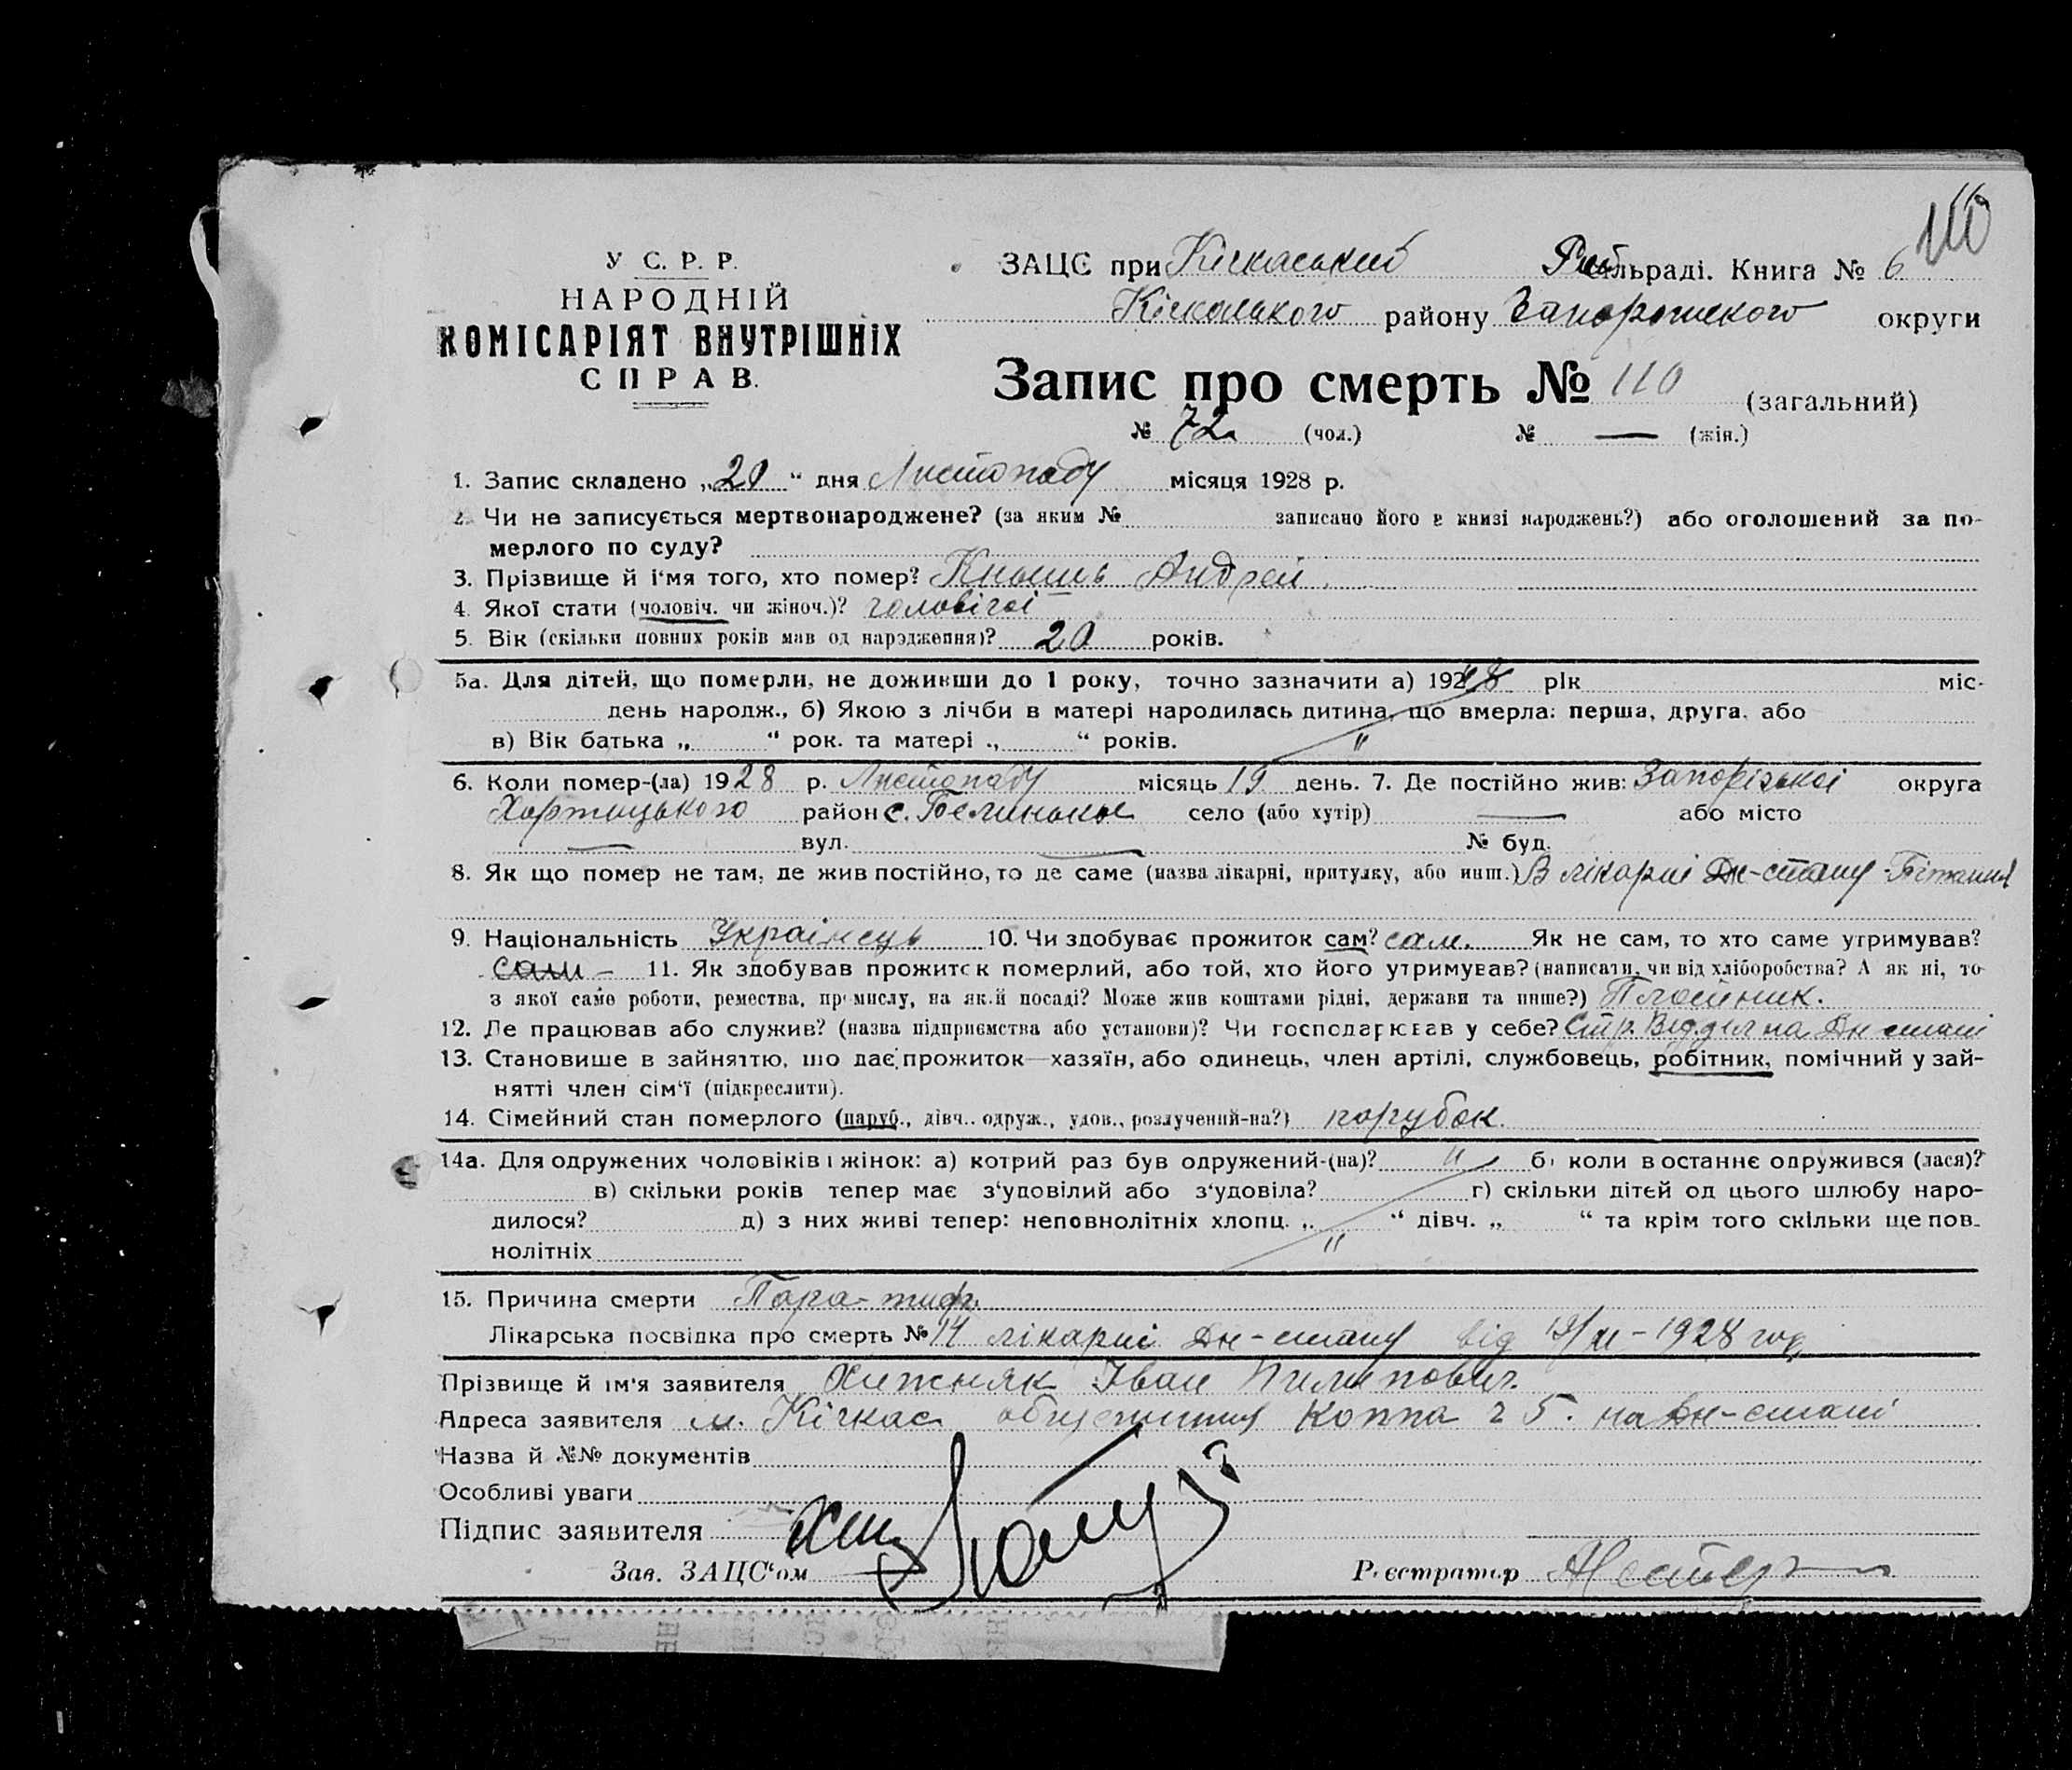 110
У С. Р. Р.
НАРОДНІЙ
КОМІСАРІЯТ ВНУТРІШНІХ
СПРАВ.
ЗАЦС при Кічкаський льраді. Книга № 6
Кічкаського району Запорожского округи
Запис про смерть № 110 (загальний)
№ 72 (чол.) № — (жін.)
1. Запис складено „20“ дня Листопаду місяця 1928 р.
2. Чи не записується мертвонароджене? (за яким № записано його в книзі народжень?) або оголошений за по-
мерлого по суду?
3. Прізвище й і'мя того, хто помер? Кнышь Андрей.
4. Якої стати (чоловіч. чи жіноч.)? чоловічої
5. Вік (скільки повних років мав од народження)? 20 років.
5а. Для дітей, що померли, не доживши до 1 року, точно зазначити а) 1928 рік міс-
день народж., б) Якою з лічби в матері народилась дитина, що вмерла: перша, друга, або
в) Вік батька „ “ рок. та матері „ “ років. "
6. Коли помер-(ла) 1928 р. Листопаду місяць 19 день. 7. Де постійно жив: Запорізької округа
Хортицького район с. село (або хутір) — або місто
— вул. — № буд.
8. Як що помер не там, де жив постійно, то де саме (назва лікарні, притулку, або инш.) В лікарні Дн-стану
9. Національність Українець 10. Чи здобуває прожиток сам? сам. Як не сам, то хто саме утримував?
сам – 11. Як здобував прожиток померлий, або той, хто його утримував? (написати, чи від хліборобства? А як ні, то
з якої саме роботи, ремества, промислу, на якій посаді? Може жив коштами рідні, держави та инше?)
12. Де працював або служив? (назва підприємства або установи)? Чи господарював у себе? Стр. Відділ на Дн стані
13. Становище в зайняттю, що дає прожиток—хазяїн, або одинець, член артілі, службовець, робітник, помічний у зай-
нятті член сім'ї (підкреслити).
14. Сімейний стан померлого (паруб., дівч.. одруж., удов., розлучений-на?) порубок.
14а. Для одружених чоловіків і жінок: а) котрий раз був одружений-(на)? " б) коли в останнє одружився (лася)?
в) скільки років тепер має з'удовілий або з'удовіла? г) скільки дітей од цього шлюбу наро-
дилося? д) з них живі тепер: неповнолітніх хлопц. „ “ дівч. „ “ та крім того скільки ще пов-
нолітніх "
15. Причина смерти Пара-тиф.
Лікарська посвідка про смерть № 14 лікарні Дн-стану від 19/XI-1928 год.
Прізвище й ім'я заявителя Хижняк Іван Пилипович.
Адреса заявителя м. Кічкас общежития Коппа 2 5. на Дн-стані
Назва й №№ документів
Особливі уваги
Підпис заявителя Хиж
Зав. ЗАЦС'ом Реєстратор